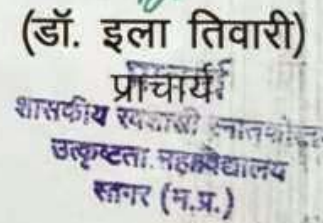 (डॉ. इला तिवारी)
प्राचार्य
शासकीय स्वशासी
उत्कृष्टता महाविद्यालय
सागर (म.प्र.)